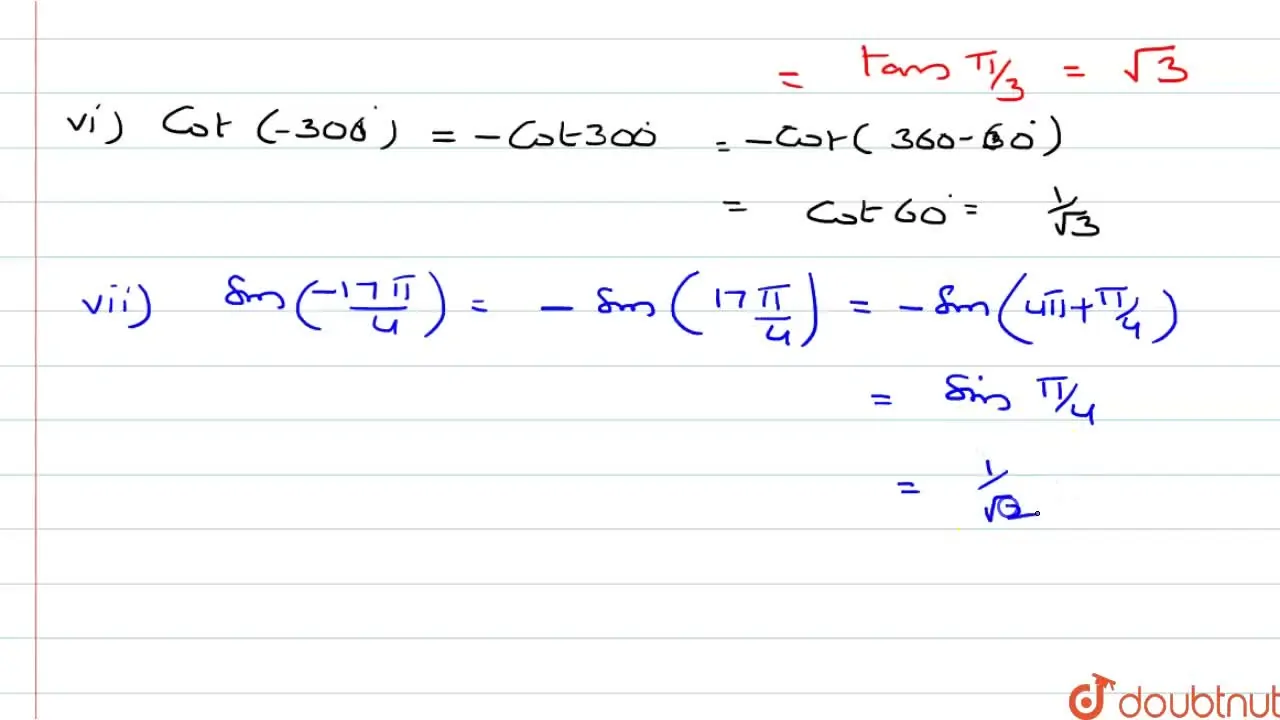 = tan π/3 = √3
vi) Cot (-300°) = -Cot300° = -Cot( 360-60°)
= Cot 60° = 1/√3
vii) Sin(-17π/4) = - Sin(17π/4) = - Sin(4π+π/4)
= Sin π/4
= 1/√2
doubtnut